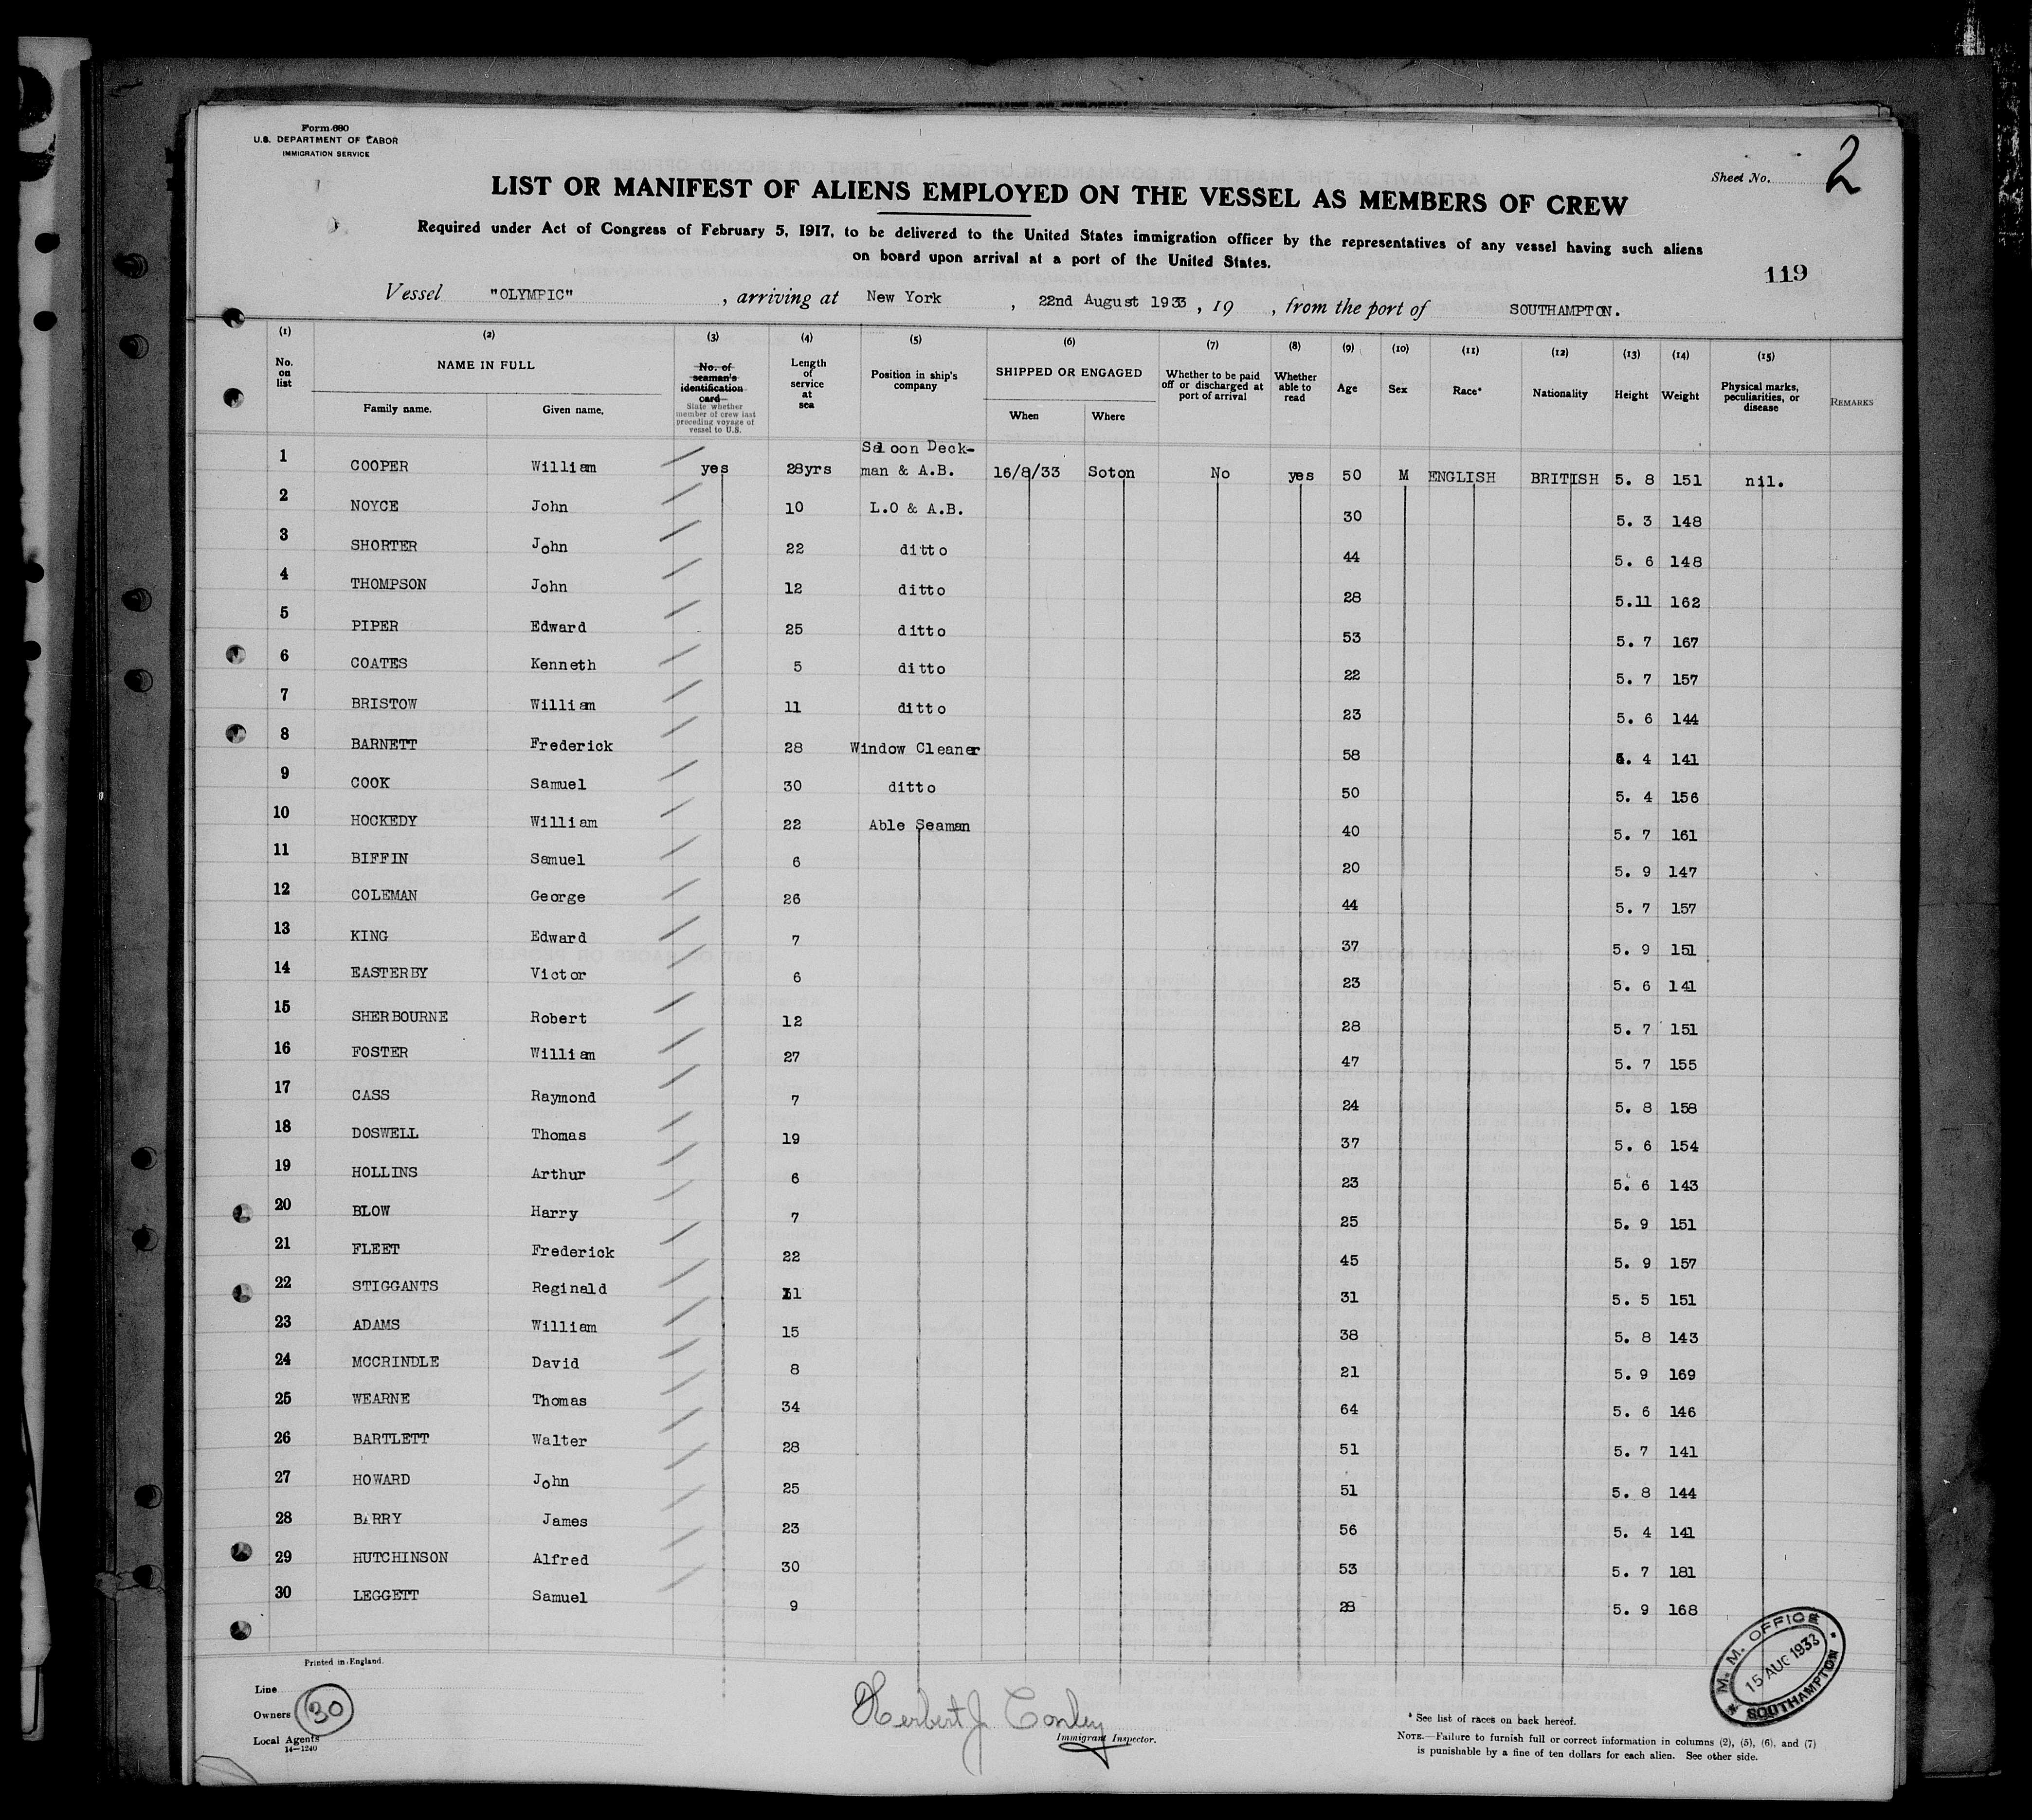 Form 680
U.S. DEPARTMENT OF LABOR
IMMIGRATION SERVICE
Sheet No. 2
LIST OR MANIFEST OF ALIENS EMPLOYED ON THE VESSEL AS MEMBERS OF CREW
Required under Act of Congress of February 5, 1917, to be delivered to the United States immigration officer by the representatives of any vessel having such aliens
on board upon arrival at a port of the United States.
119
Vessel "OLYMPIC", arriving at New York, 22nd August 1933, 19 , from the port of SOUTHAMPTON.
(1) (2) (3) (4) (5) (6) (7) (8) (9) (10) (11) (12) (13) (14) (15)
No. on list
NAME IN FULL
Family name. Given name.
No. of seaman's identification card
State whether member of crew last preceding voyage of vessel to U.S.
Length of service at sea
Position in ship's company
SHIPPED OR ENGAGED
When Where
Whether to be paid off or discharged at port of arrival
Whether able to read
Age
Sex
Race*
Nationality
Height
Weight
Physical marks, peculiarities, or disease
REMARKS
1 COOPER William yes 28yrs Saloon Deck-man & A.B. 16/8/33 Soton No yes 50 M ENGLISH BRITISH 5. 8 151 nil.
2 NOYCE John 10 L.O & A.B. 30 5. 3 148
3 SHORTER John 22 ditto 44 5. 6 148
4 THOMPSON John 12 ditto 28 5.11 162
5 PIPER Edward 25 ditto 53 5. 7 167
6 COATES Kenneth 5 ditto 22 5. 7 157
7 BRISTOW William 11 ditto 23 5. 6 144
8 BARNETT Frederick 28 Window Cleaner 58 5. 4 141
9 COOK Samuel 30 ditto 50 5. 4 156
10 HOCKEDY William 22 Able Seaman 40 5. 7 161
11 BIFFIN Samuel 6 20 5. 9 147
12 COLEMAN George 26 44 5. 7 157
13 KING Edward 7 37 5. 9 151
14 EASTERBY Victor 6 23 5. 6 141
15 SHERBOURNE Robert 12 28 5. 7 151
16 FOSTER William 27 47 5. 7 155
17 CASS Raymond 7 24 5. 8 158
18 DOSWELL Thomas 19 37 5. 6 154
19 HOLLINS Arthur 6 23 5. 6 143
20 BLOW Harry 7 25 5. 9 151
21 FLEET Frederick 22 45 5. 9 157
22 STIGGANTS Reginald 11 31 5. 5 151
23 ADAMS William 15 38 5. 8 143
24 MCCRINDLE David 8 21 5. 9 169
25 WEARNE Thomas 34 64 5. 6 146
26 BARTLETT Walter 28 51 5. 7 141
27 HOWARD John 25 51 5. 8 144
28 BARRY James 23 56 5. 4 141
29 HUTCHINSON Alfred 30 53 5. 7 181
30 LEGGETT Samuel 9 28 5. 9 168
M. M. OFFICE
15 AUG 1933
SOUTHAMPTON
Printed in England.
Line
Owners
30
Local Agents
14—1240
Herbert J. Conley
Immigrant Inspector.
* See list of races on back hereof.
NOTE.—Failure to furnish full or correct information in columns (2), (5), (6), and (7)
is punishable by a fine of ten dollars for each alien. See other side.